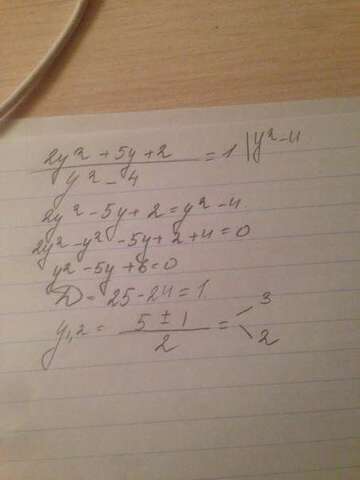 (2y² + 5y + 2)/(y² - 4) = 1 | y² - 4
2y² - 5y + 2 = y² - 4
2y² - y² - 5y + 2 + 4 = 0
y² - 5y + 6 = 0
D = 25 - 24 = 1
y₁,₂ = (5 ± 1)/2 = < 3
2